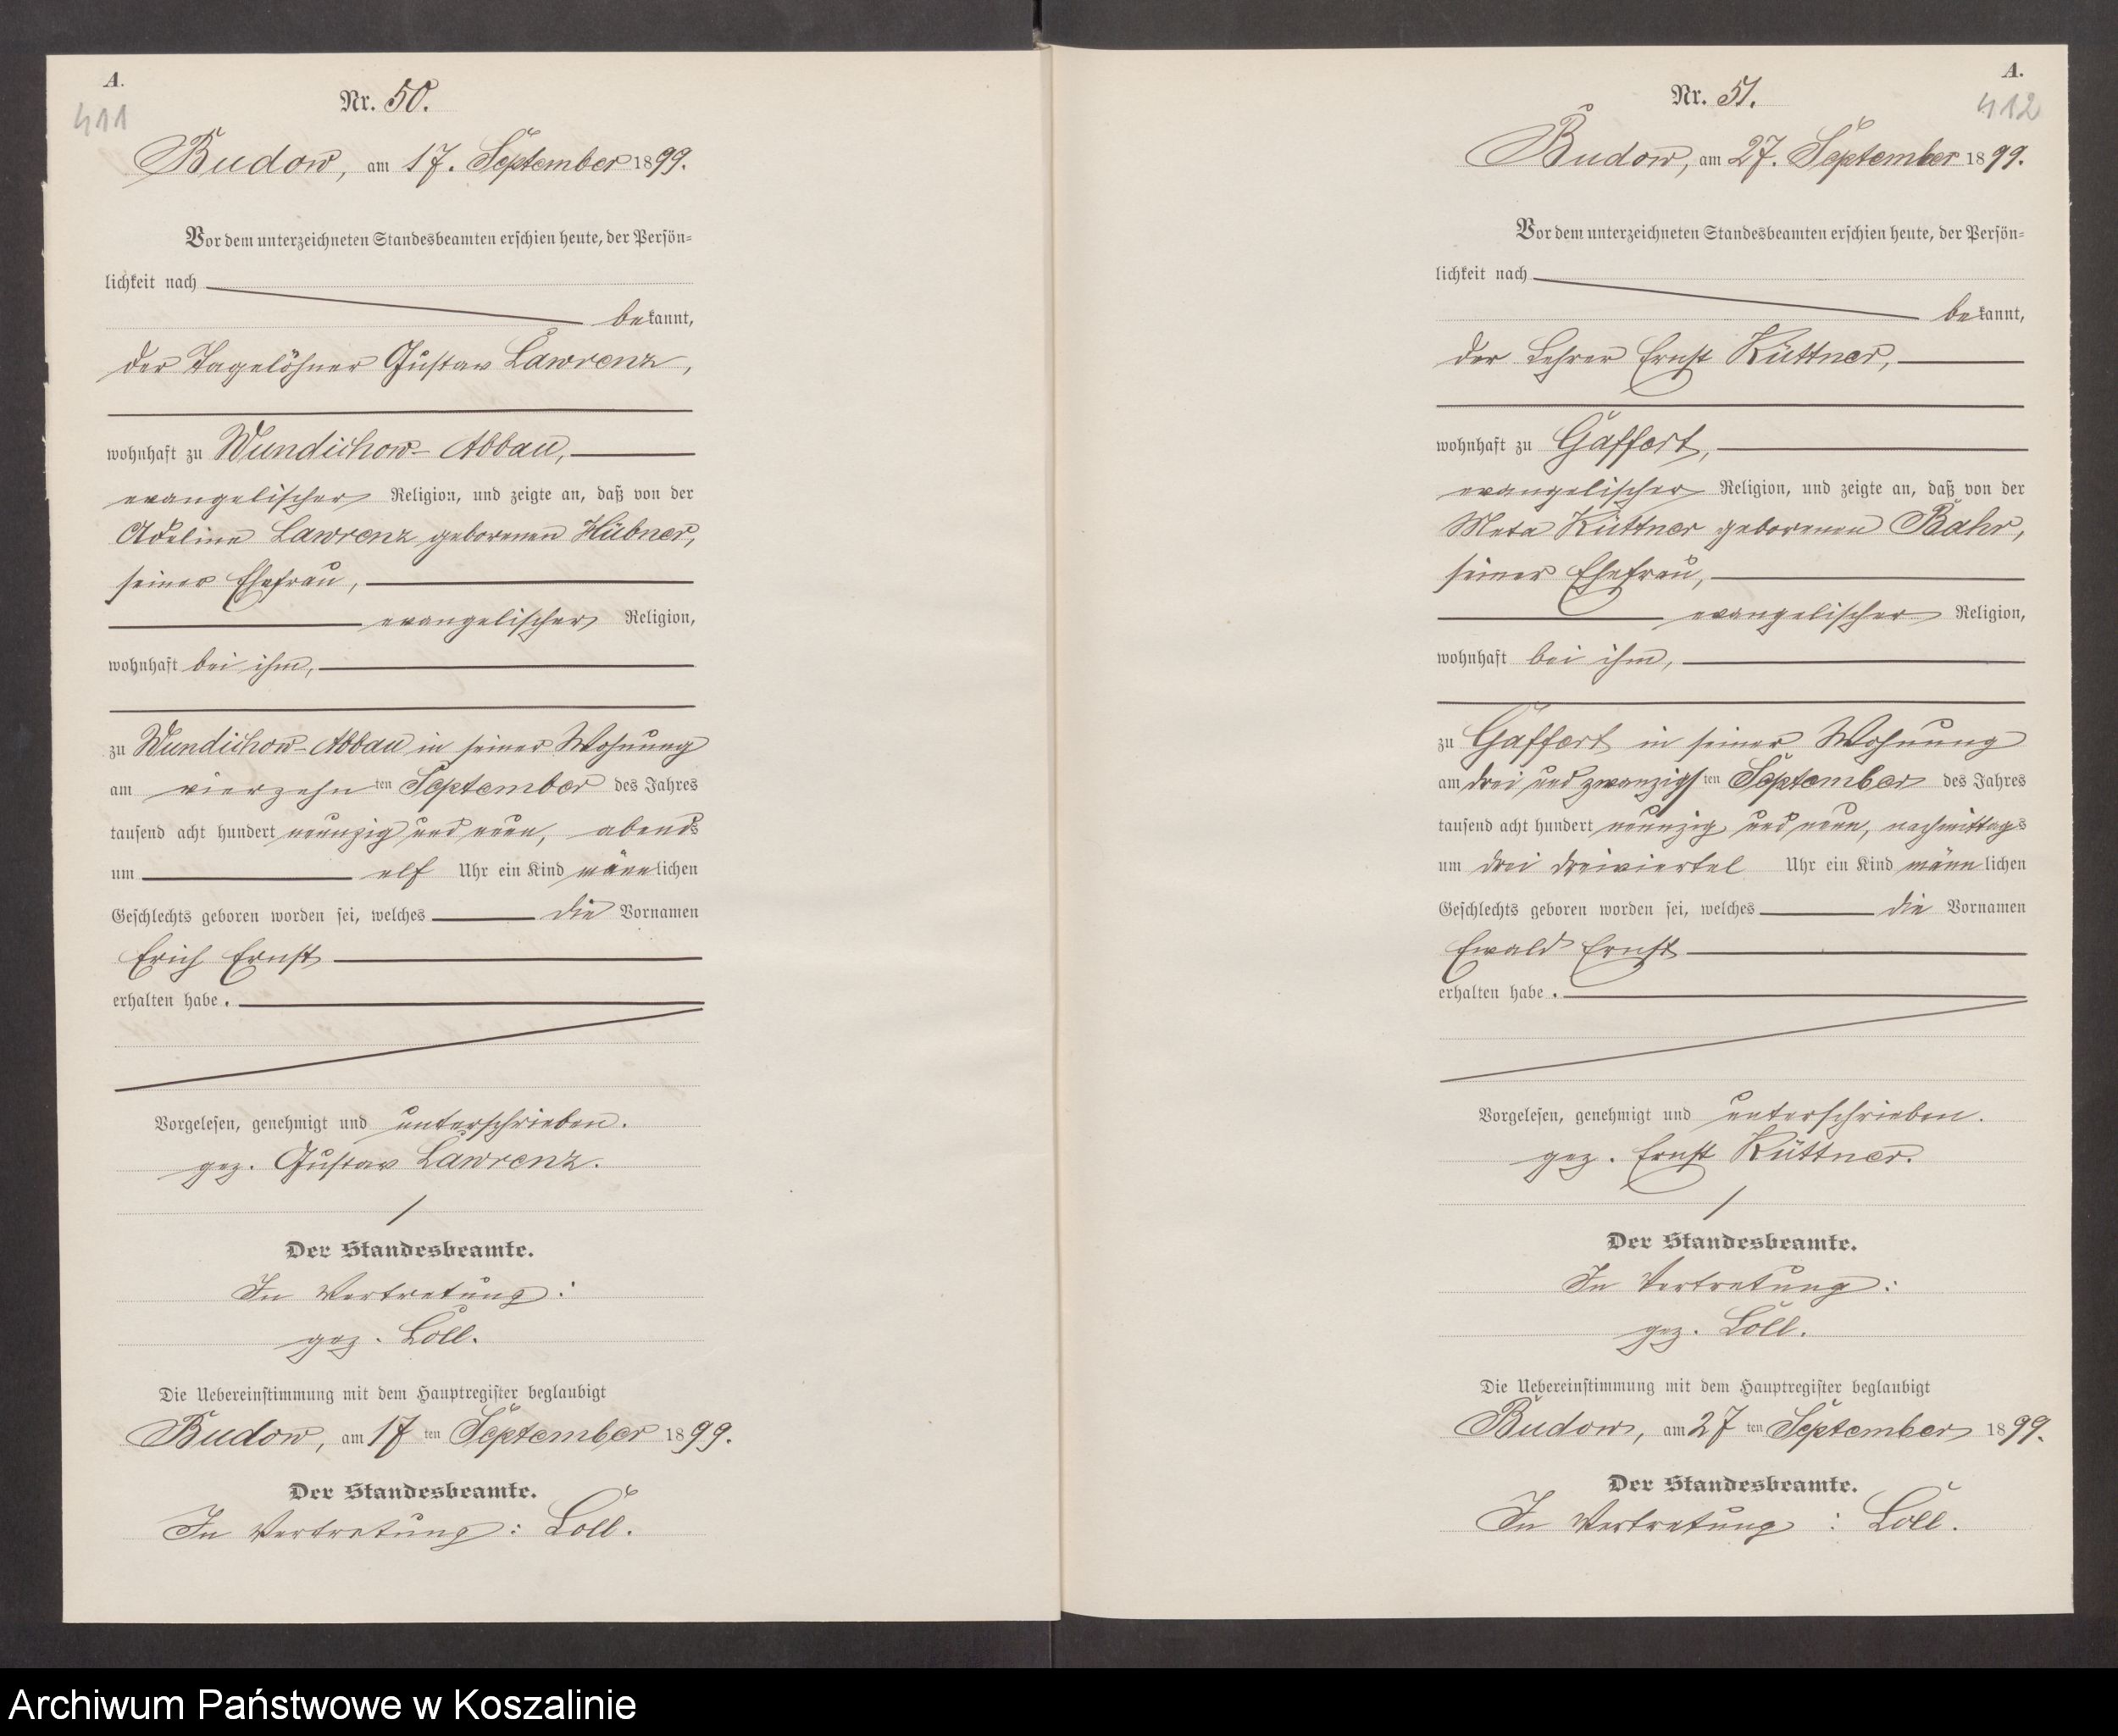 A.
411
Nr. 50.
Budow, am 17. September 1899.
Vor dem unterzeichneten Standesbeamten erschien heute, der Persön=
lichkeit nach
bekannt,
der Tagelöhner Gustav Lawrenz,
wohnhaft zu Wundichow-Abbau,
evangelischer Religion, und zeigte an, daß von der
Adeline Lawrenz geborenen Hübner,
seiner Ehefrau,
evangelischer Religion,
wohnhaft bei ihm,
zu Wundichow-Abbau in seiner Wohnung
am vierzehn ten September des Jahres
tausend acht hundert neunzig und neun, abends
um elf Uhr ein Kind männlichen
Geschlechts geboren worden sei, welches die Vornamen
Erich Ernst
erhalten habe.
Vorgelesen, genehmigt und unterschrieben.
gez. Gustav Lawrenz.
Der Standesbeamte.
In Vertretung:
gez. Löll.
Die Uebereinstimmung mit dem Hauptregister beglaubigt
Budow, am 17 ten September 1899.
Der Standesbeamte.
In Vertretung: Löll.
A.
412
Nr. 51.
Budow, am 27. September 1899.
Vor dem unterzeichneten Standesbeamten erschien heute, der Persön=
lichkeit nach
bekannt,
der Lehrer Ernst Küttner,
wohnhaft zu Gaffert,
evangelischer Religion, und zeigte an, daß von der
Meta Küttner geborenen Bahr,
seiner Ehefrau,
evangelischer Religion,
wohnhaft bei ihm,
zu Gaffert in seiner Wohnung
am drei und zwanzigs ten September des Jahres
tausend acht hundert neunzig und neun, nachmittags
um drei dreiviertel Uhr ein Kind männlichen
Geschlechts geboren worden sei, welches die Vornamen
Ewald Ernst
erhalten habe.
Vorgelesen, genehmigt und unterschrieben.
gez. Ernst Küttner.
Der Standesbeamte.
In Vertretung:
gez. Löll.
Die Uebereinstimmung mit dem Hauptregister beglaubigt
Budow, am 27 ten September 1899.
Der Standesbeamte.
In Vertretung: Löll.
Archiwum Państwowe w Koszalinie